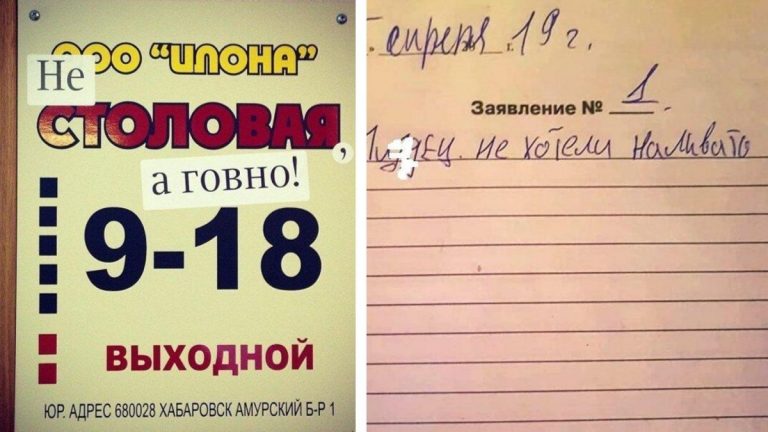 ООО "ИЛОНА"
Не
СТОЛОВАЯ,
а говно!
9-18
ВЫХОДНОЙ
ЮР. АДРЕС 680028 ХАБАРОВСК АМУРСКИЙ Б-Р 1
апреля 19 г.
Заявление № 1.
не хотели наливать